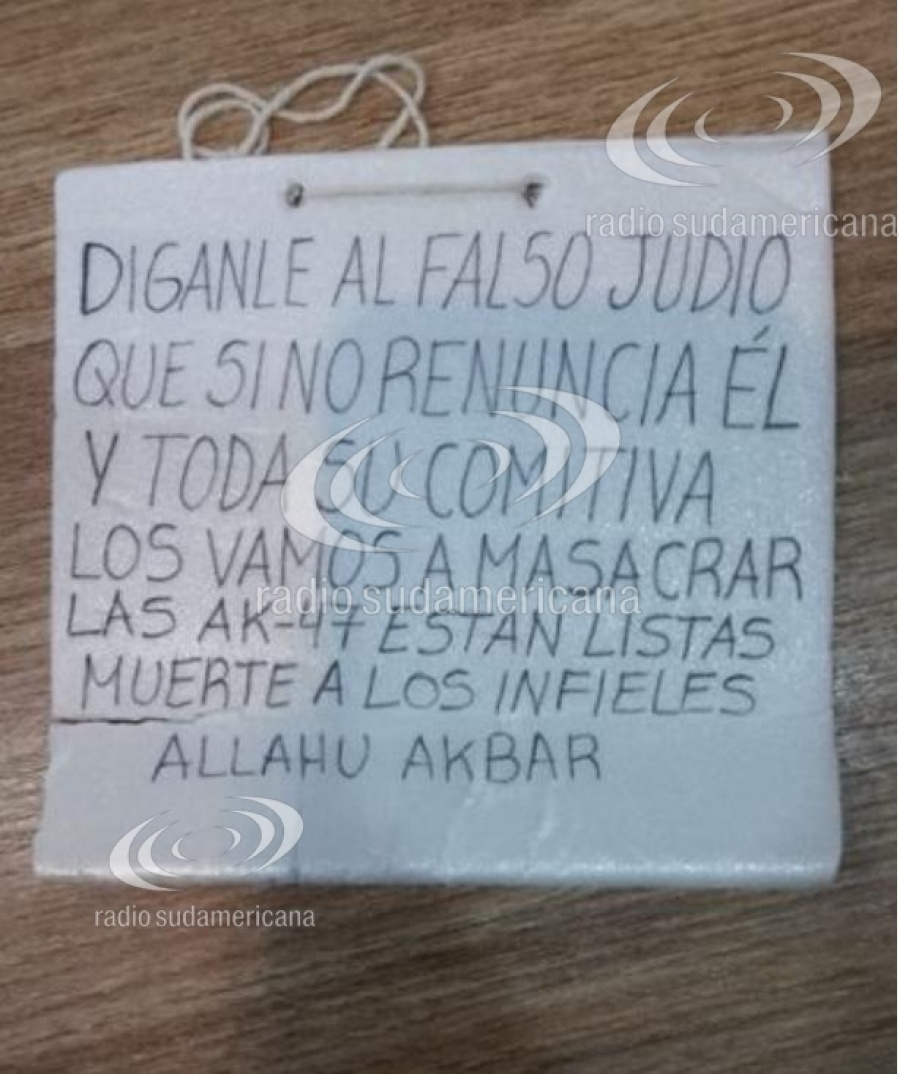 radio sudamericana
DIGANLE AL FALSO JUDIO
QUE SI NO RENUNCIA ÉL
Y TODA SU COMITIVA
LOS VAMOS A MASACRAR
radio sudamericana
LAS AK-47 ESTAN LISTAS
MUERTE A LOS INFIELES
ALLAHU AKBAR
radio sudamericana